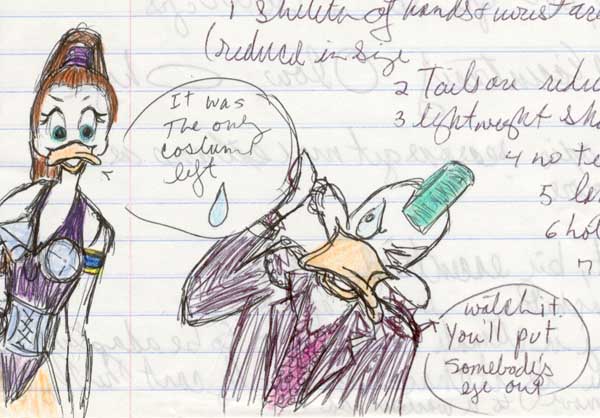 1 skeleton of hands + wrist are
(reduced in size
2 Tails are redu
3 lightweight sha
4 no te
5 la
6 hol
7
It was
The only
costume
left
watch it.
You'll put
somebody's
eye out